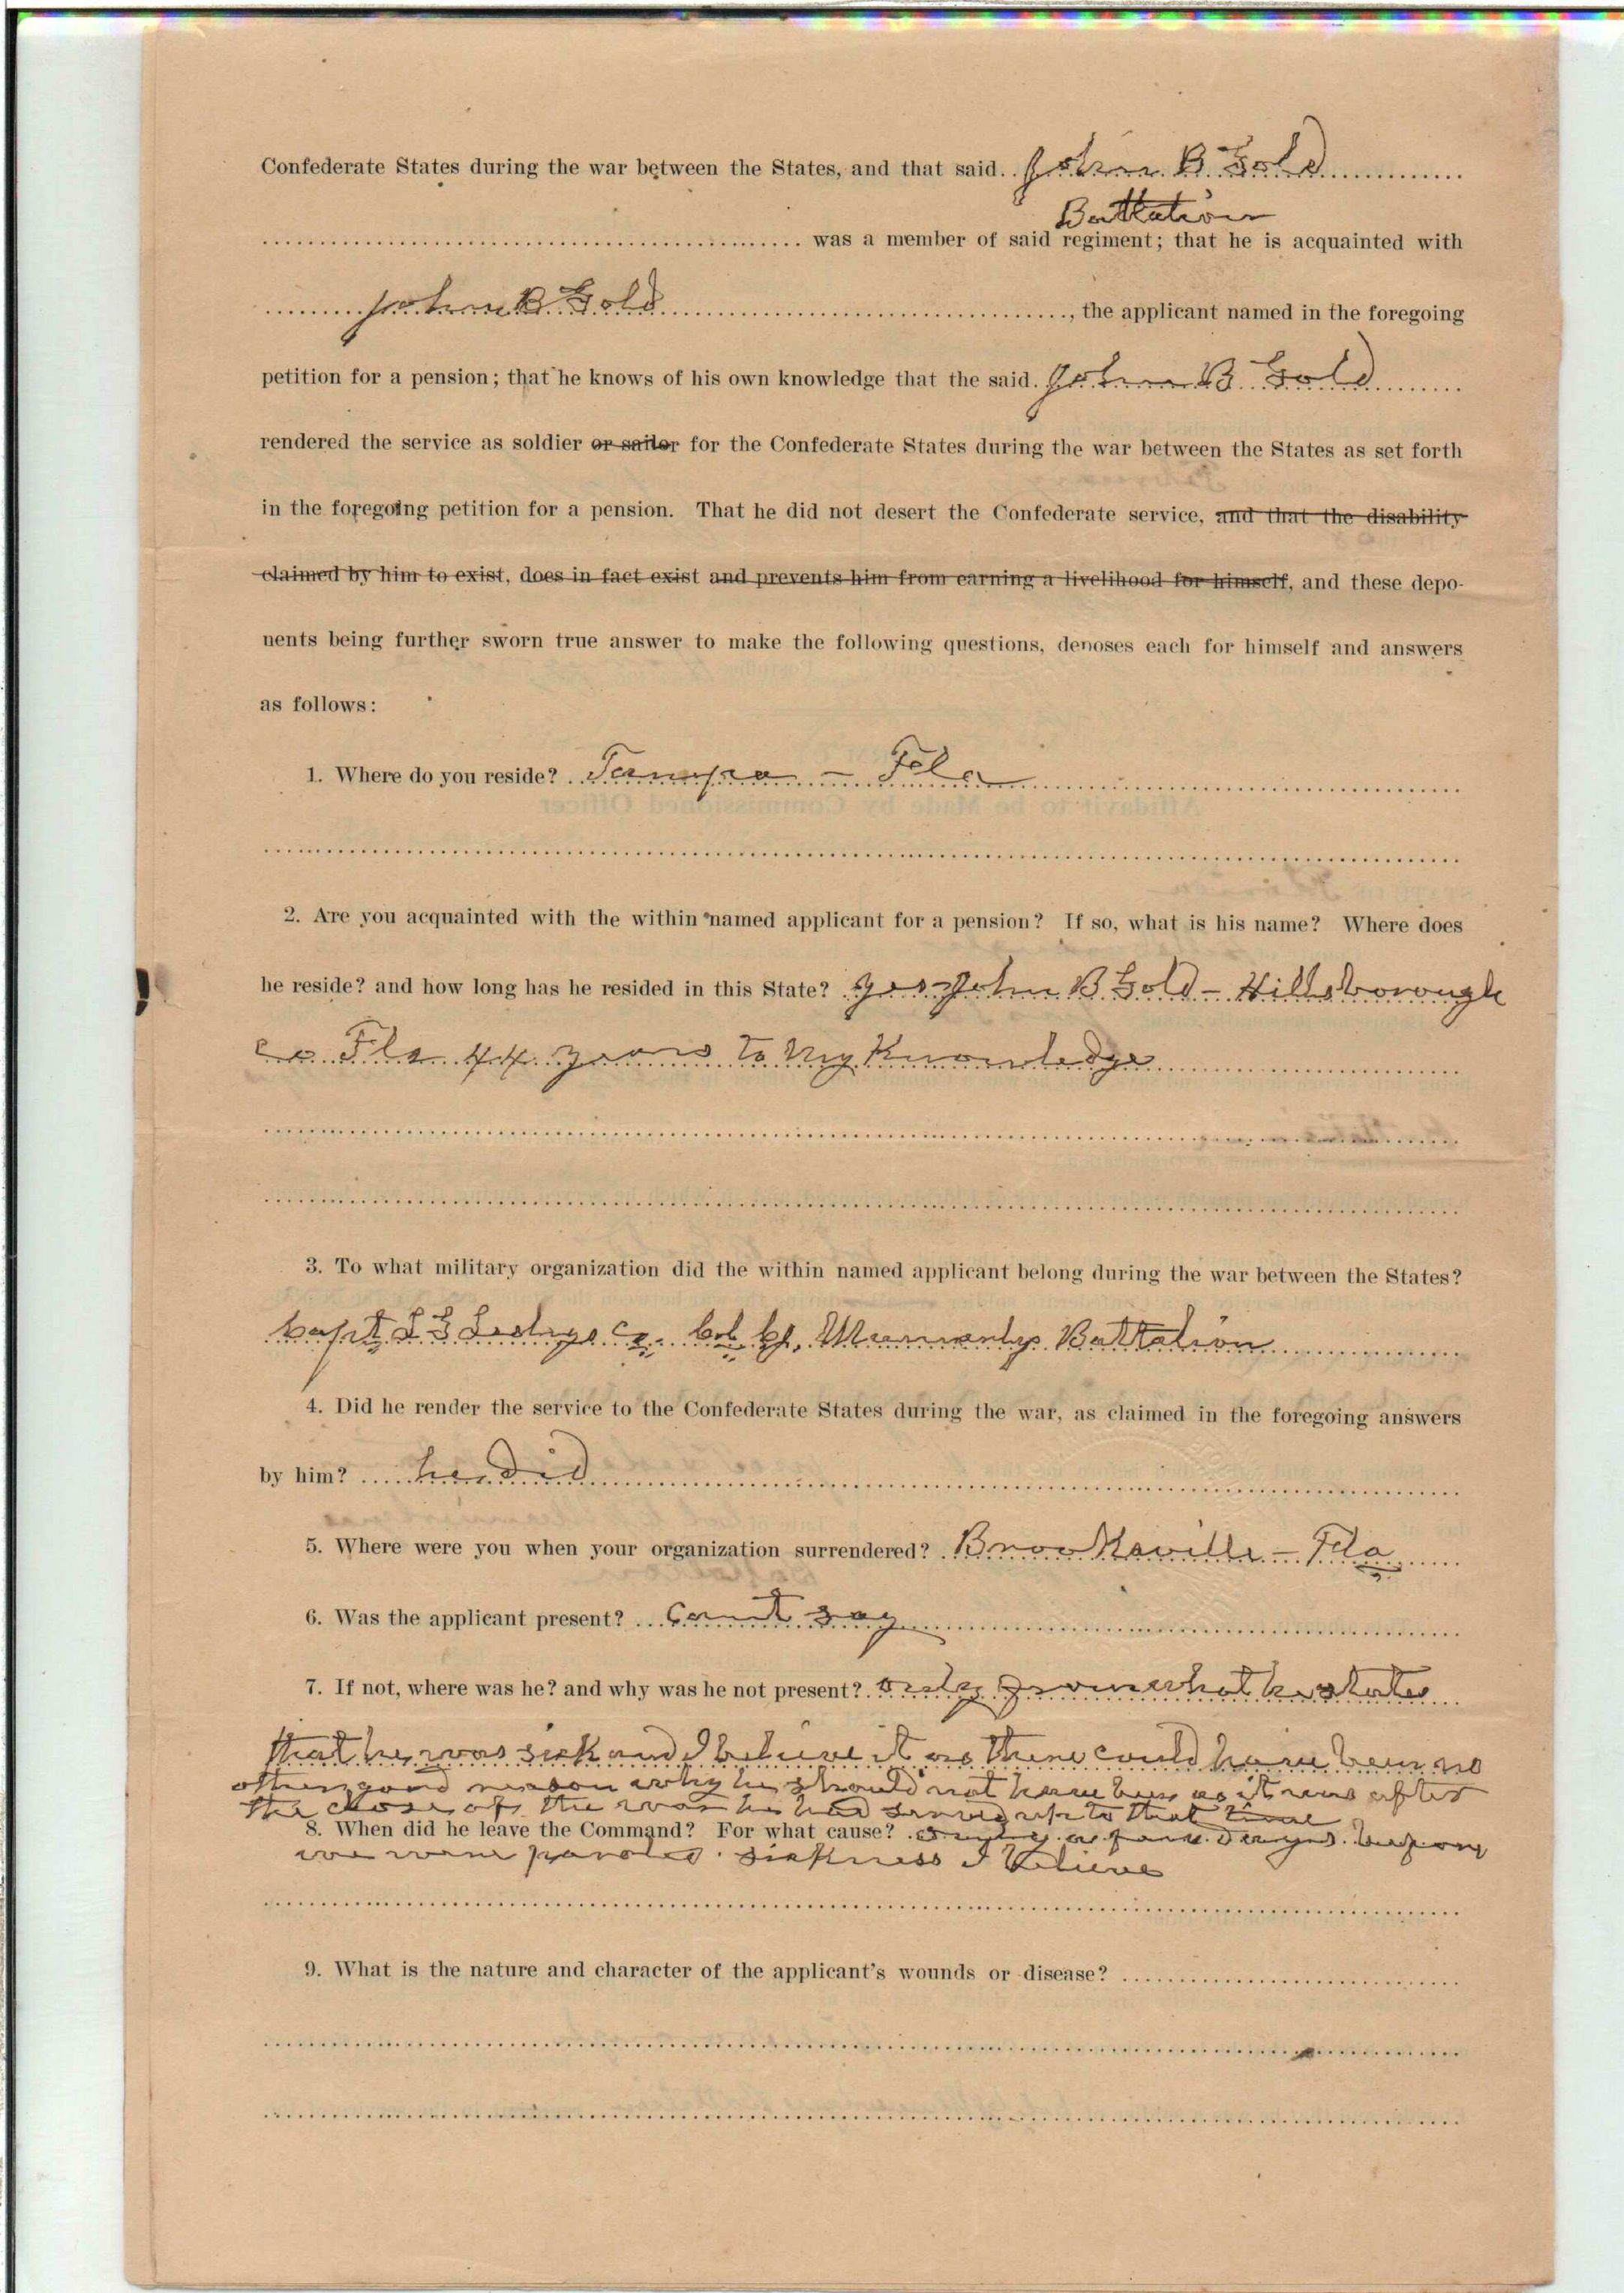 Confederate States during the war between the States, and that said John B Gold
Battalion
was a member of said regiment; that he is acquainted with
John B Gold, the applicant named in the foregoing
petition for a pension; that he knows of his own knowledge that the said John B Gold
rendered the service as soldier or sailor for the Confederate States during the war between the States as set forth
in the foregoing petition for a pension. That he did not desert the Confederate service, and that the disability
claimed by him to exist, does in fact exist and prevents him from earning a livelihood for himself, and these depo-
nents being further sworn true answer to make the following questions, denoses each for himself and answers
as follows:
1. Where do you reside? Tampa - Fla
2. Are you acquainted with the within named applicant for a pension? If so, what is his name? Where does
he reside? and how long has he resided in this State? yes John B Gold - Hillsborough
co Fla 44 years to my Knowledge
3. To what military organization did the within named applicant belong during the war between the States?
Capt Co. Col Battalion
4. Did he render the service to the Confederate States during the war, as claimed in the foregoing answers
by him? he did
5. Where were you when your organization surrendered? Brooksville - Fla
6. Was the applicant present? Cant say
7. If not, where was he? and why was he not present? only from what he states
that he was sick and I believe it as there could have been no
other good reason why he should not have been as it was after
the close of the war he had served up to that time
8. When did he leave the Command? For what cause? only a few days before
we were paroled. sickness I believe
9. What is the nature and character of the applicant's wounds or disease?